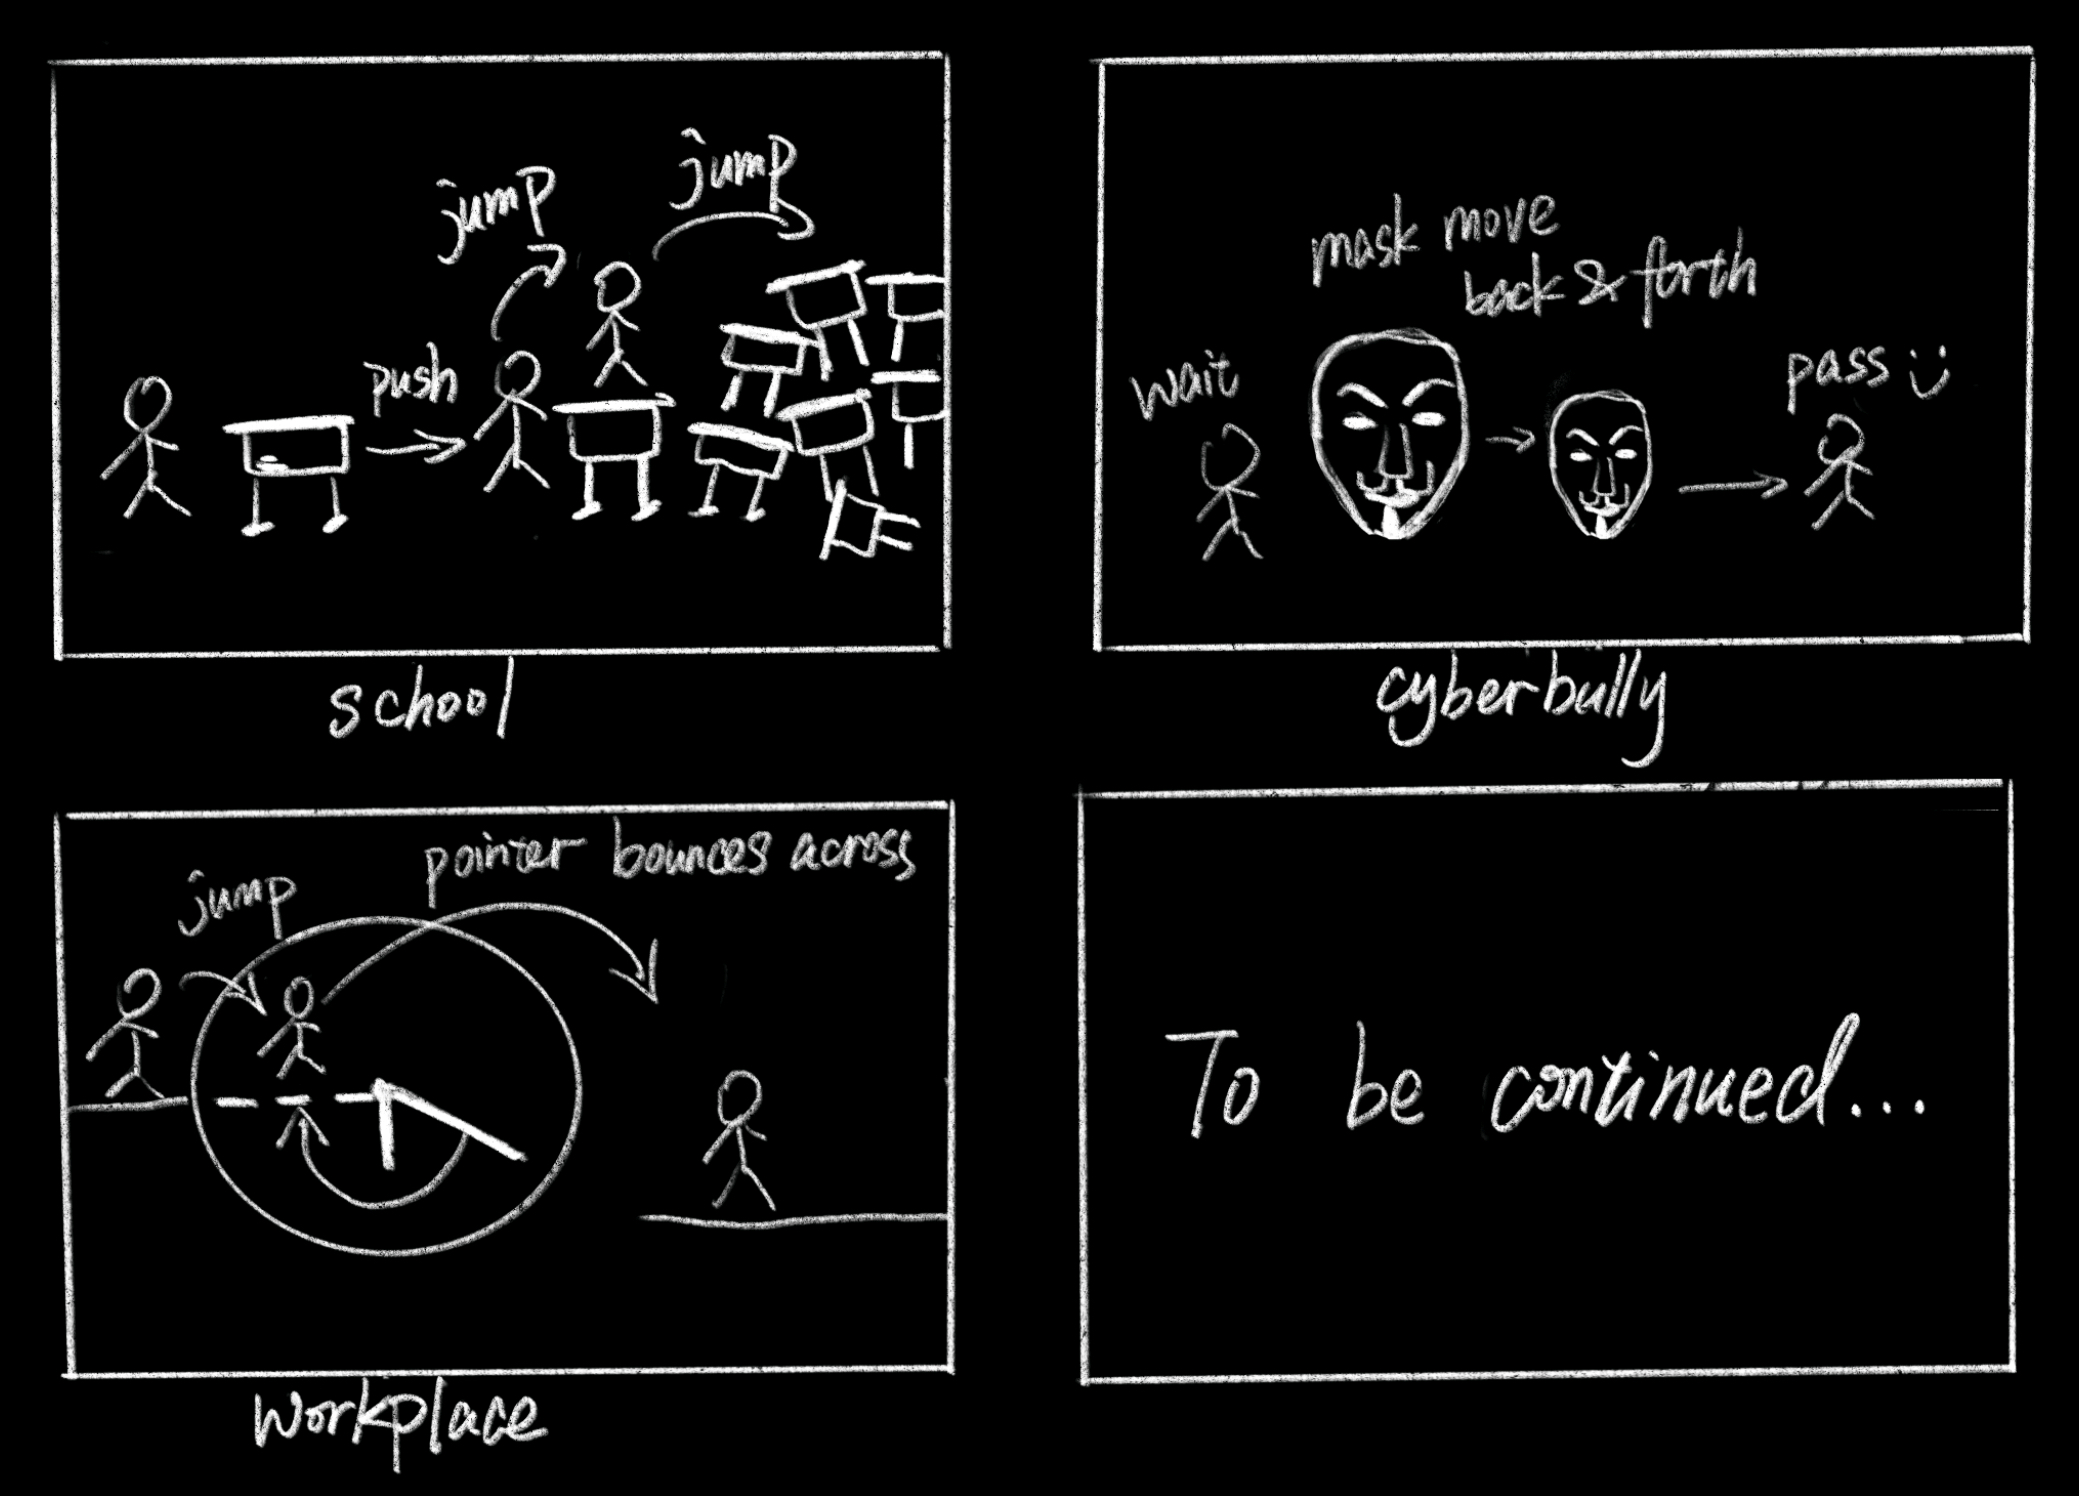 jump
jump
push
school
mask move
back & forth
wait
pass :)
cyberbully
pointer bounces across
jump
workplace
To be continued...